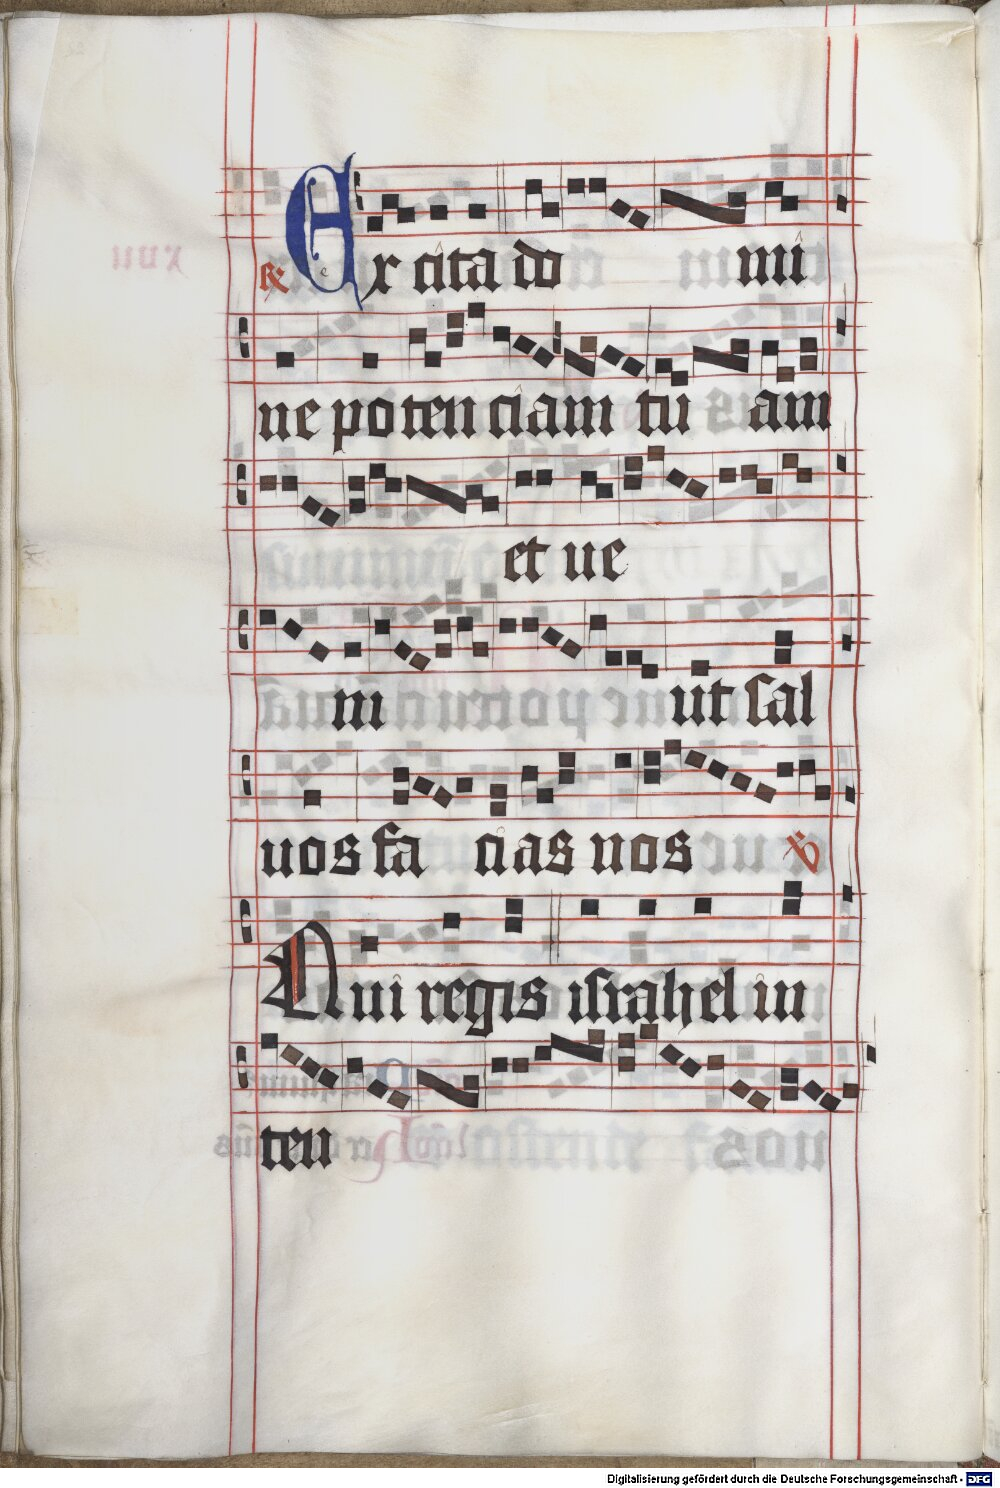 ℟ Ex cita do mi
ne poten ciam tu am
et ue
ni ut sal
uos fa cias nos ℣
Qui regis israhel in
ten
Digitalisierung gefördert durch die Deutsche Forschungsgemeinschaft - DFG